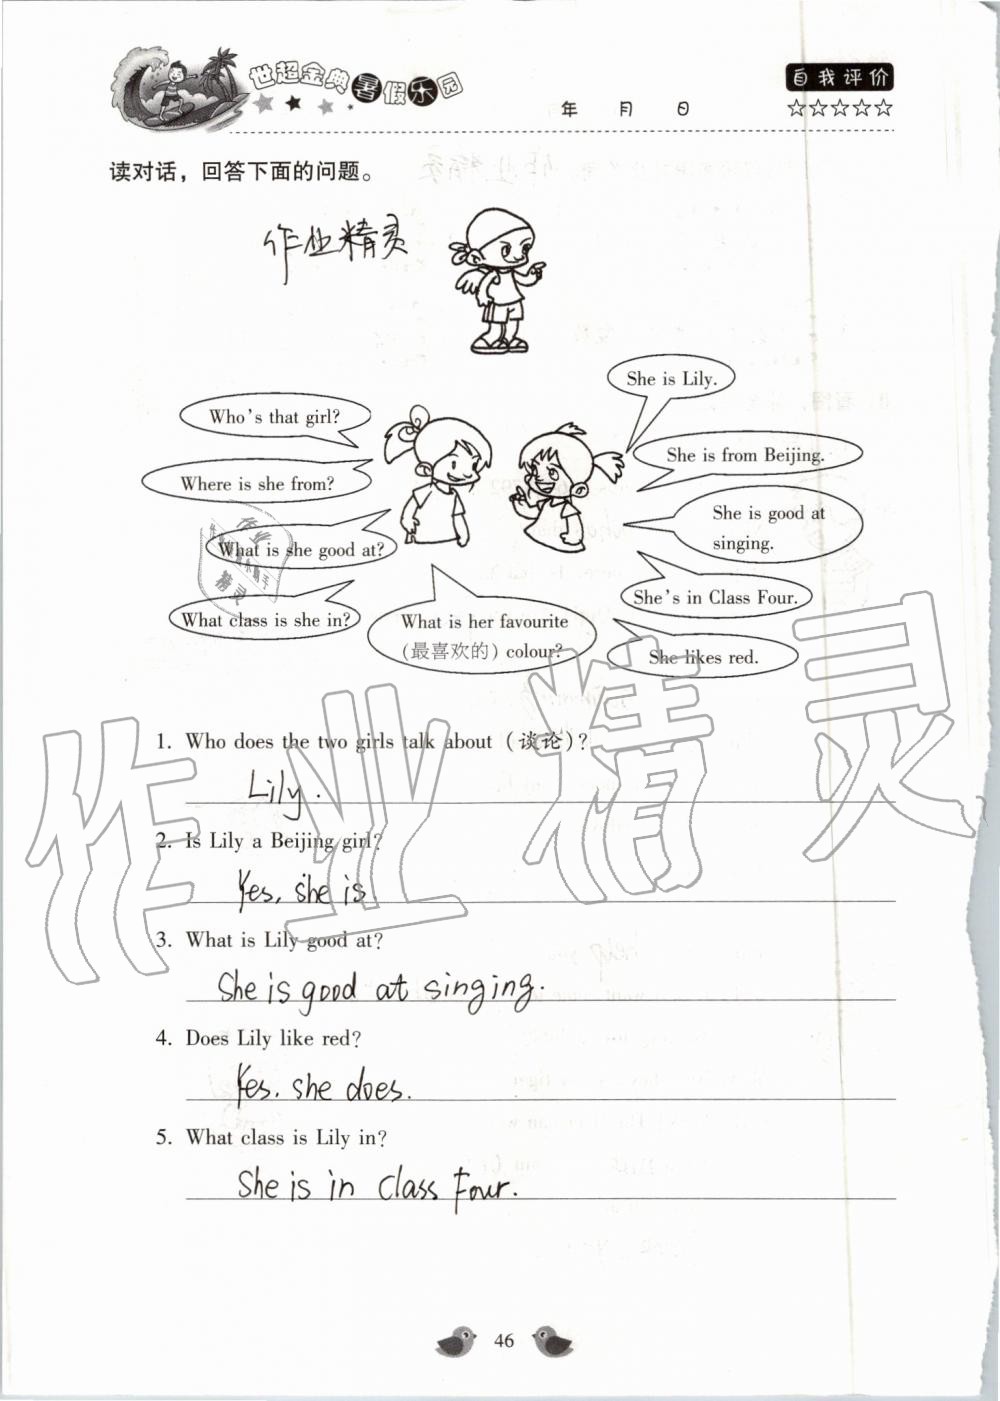 世超金典暑假乐园
自我评价
年 月 日
☆☆☆☆☆
读对话，回答下面的问题。
作业精灵
She is Lily.
Who's that girl?
She is from Beijing.
Where is she from?
She is good at
singing.
What is she good at?
She's in Class Four.
What class is she in?
What is her favourite
(最喜欢的) colour?
She likes red.
1. Who does the two girls talk about (谈论)?
Lily.
2. Is Lily a Beijing girl?
Yes, she is
3. What is Lily good at?
She is good at singing.
4. Does Lily like red?
Yes. she does.
5. What class is Lily in?
She is in class Four.
作业精灵
46